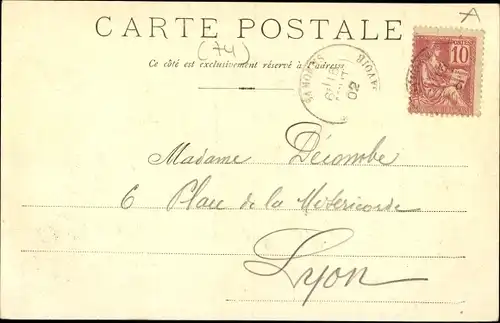 CARTE POSTALE
(74)
A
Ce côté est exclusivement réservé à l'adresse
SAMOËNS
SAVOIE
02
POSTES
10
Madame Décombe
6 Place de la Miséricorde
Lyon